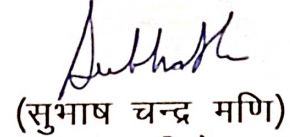 Subhash
(सुभाष चन्द्र मणि)